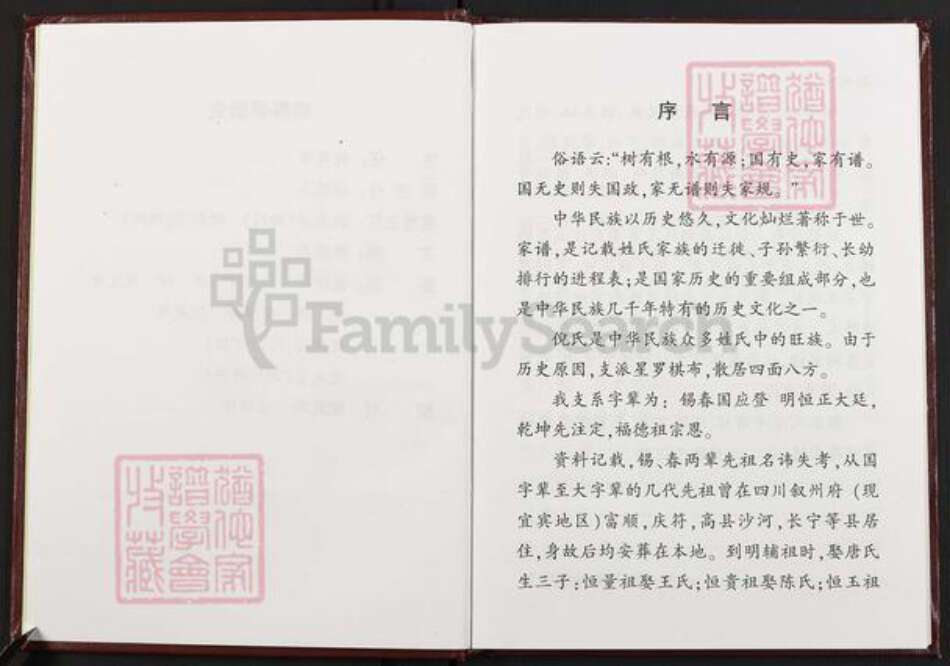 序　言
俗语云:“树有根,水有源;国有史,家有谱。
国无史则失国政,家无谱则失家规。”
中华民族以历史悠久,文化灿烂著称于世。
家谱,是记载姓氏家族的迁徙、子孙繁衍、长幼
排行的进程表;是国家历史的重要组成部分,也
是中华民族几千年特有的历史文化之一。
倪氏是中华民族众多姓氏中的旺族。由于
历史原因,支派星罗棋布,散居四面八方。
我支系字辈为: 锡春国应登 明恒正大廷,
乾坤先注定,福德祖宗恩。
资料记载,锡、春两辈先祖名讳失考,从国
字辈至大字辈的几代先祖曾在四川叙州府 (现
宜宾地区)富顺,庆符,高县沙河,长宁等县居
住,身故后均安葬在本地。到明辅祖时,娶唐氏
生三子:恒量祖娶王氏;恒贵祖娶陈氏;恒玉祖
FamilySearch